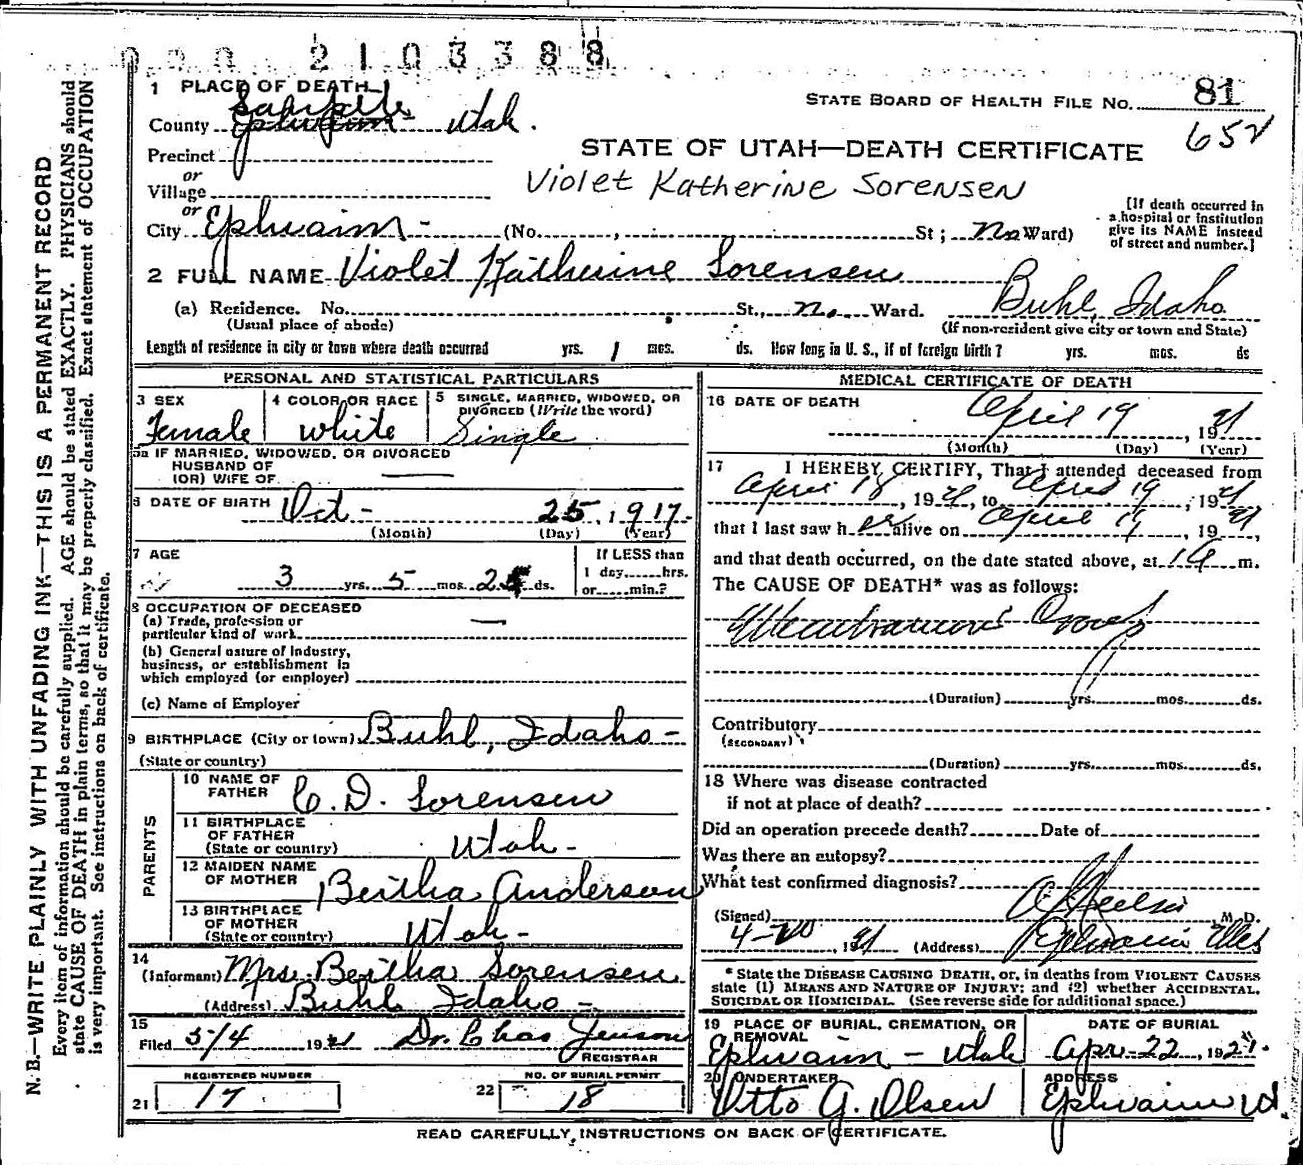 000 2103388
1 PLACE OF DEATH
STATE BOARD OF HEALTH FILE NO. 81
County Sanpete Ephraim Utah.
652
Precinct
STATE OF UTAH—DEATH CERTIFICATE
or
Village
Violet Katherine Sorensen
or
City Ephraim - (No. , St; No Ward)
[If death occurred in
a hospital or institution
give its NAME instead
of street and number.]
2 FULL NAME Violet Katherine Sorensen
(a) Residence. No. St., No. Ward. Buhl, Idaho.
(Usual place of abode)
(If non-resident give city or town and State)
Length of residence in city or town where death occurred yrs. 1 mos. ds. How long in U. S., if of foreign birth? yrs. mos. ds
PERSONAL AND STATISTICAL PARTICULARS
3 SEX
Female
4 COLOR OR RACE
white
5 SINGLE, MARRIED, WIDOWED, OR
DIVORCED (Write the word)
Single
5a IF MARRIED, WIDOWED, OR DIVORCED
HUSBAND OF
(OR) WIFE OF —
6 DATE OF BIRTH Oct - 25, 1917-
(Month) (Day) (Year)
7 AGE
3 yrs. 5 mos. ds.
If LESS than
1 day......hrs.
or......min.?
8 OCCUPATION OF DECEASED
(a) Trade, profession or
particular kind of work —
(b) General nature of industry,
business, or establishment in
which employed (or employer)
(c) Name of Employer
9 BIRTHPLACE (City or town) Buhl, Idaho -
(State or country)
PARENTS
10 NAME OF
FATHER C. D. Sorensen
11 BIRTHPLACE
OF FATHER
(State or country) Utah -
12 MAIDEN NAME
OF MOTHER Bertha Anderson
13 BIRTHPLACE
OF MOTHER
(State or country) Utah -
14
(Informant) Mrs. Bertha Sorensen
(Address) Buhl Idaho -
15
Filed 5/4 1921 Dr. Chas Jenson
REGISTRAR
REGISTERED NUMBER
21 17
NO. OF BURIAL PERMIT
22 18
MEDICAL CERTIFICATE OF DEATH
16 DATE OF DEATH April 19, 1921
(Month) (Day) (Year)
17 I HEREBY CERTIFY, That I attended deceased from
April 18, 1921, to April 19, 1921
that I last saw h er alive on April 19, 1921,
and that death occurred, on the date stated above, at m.
The CAUSE OF DEATH* was as follows:
Membranous Croup
(Duration) yrs. mos. ds.
Contributory
(SECONDARY)
(Duration) yrs. mos. ds.
18 Where was disease contracted
if not at place of death?
Did an operation precede death? Date of
Was there an autopsy?
What test confirmed diagnosis?
(Signed) M. D.
4-20, 1921 (Address) Ephraim Utah
* State the DISEASE CAUSING DEATH, or, in deaths from VIOLENT CAUSES
state (1) MEANS AND NATURE OF INJURY; and (2) whether ACCIDENTAL,
SUICIDAL OR HOMICIDAL. (See reverse side for additional space.)
19 PLACE OF BURIAL, CREMATION, OR
REMOVAL
Ephraim - Utah
DATE OF BURIAL
Apr-22, 1921.
20 UNDERTAKER
Otto G. Olsen
ADDRESS
Ephraim Ut.
READ CAREFULLY, INSTRUCTIONS ON BACK OF CERTIFICATE.
N. B.—WRITE PLAINLY WITH UNFADING INK—THIS IS A PERMANENT RECORD
Every item of information should be carefully supplied. AGE should be stated EXACTLY. PHYSICIANS should
state CAUSE OF DEATH in plain terms, so that it may be properly classified. Exact statement of OCCUPATION
is very important. See instructions on back of certificate.